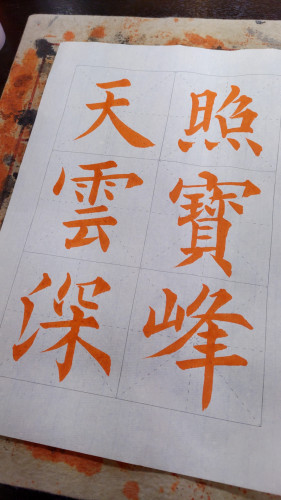 照寶峰
天雲深